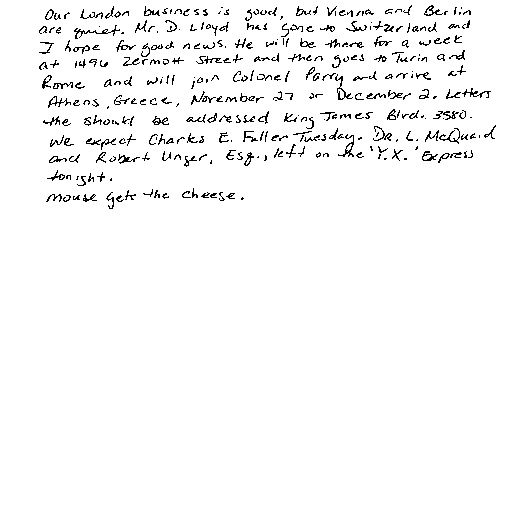 Our London business is good, but Vienna and Berlin
are quiet. Mr. D. Lloyd has gone to Switzerland and
I hope for good news. He will be there for a week
at 1496 Zermott Street and then goes to Turin and
Rome and will join Colonel Parry and arrive at
Athens, Greece, November 27 or December 2. Letters
the should be addressed King James Blvd. 3580.
We expect Charles E. Fuller Tuesday. Dr. L. McQuaid
and Robert Unger, Esq., left on the 'Y.X.' Express
tonight.
mouse gets the cheese.